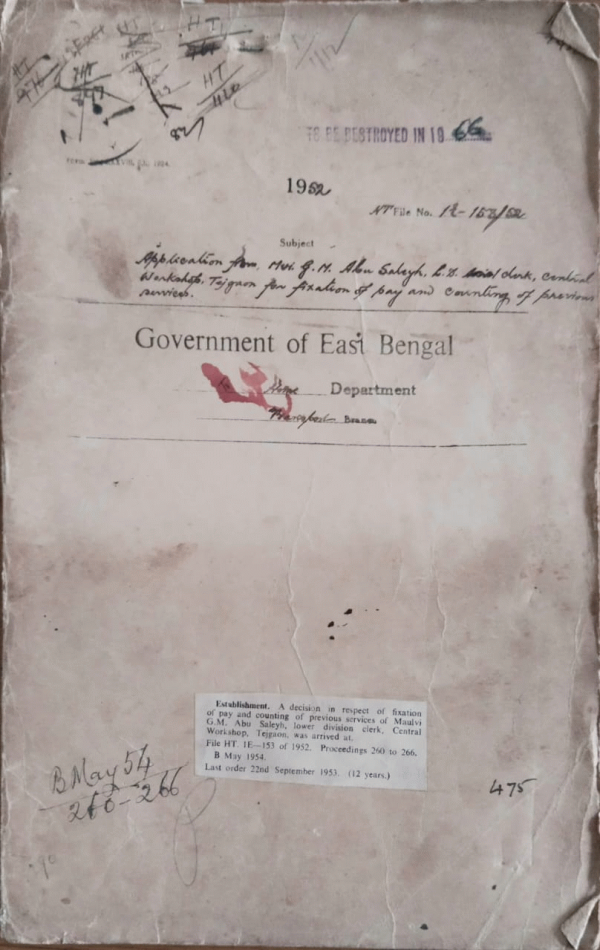 HT
HT
HT
HT
420
1/12
TO BE DESTROYED IN 1966
1952
HT File No. 1E-153/52
Subject
Application from Mvi. G. M. Abu Saleyh, L.D. clerk, Central
Workshop, Tejgaon for fixation of pay and counting of previous
services.
Government of East Bengal
Home Department
Transport Branch
Establishment. A decision in respect of fixation
of pay and counting of previous services of Maulvi
G.M. Abu Saleyh, lower division clerk, Central
Workshop, Tejgaon, was arrived at.
File HT. 1E—153 of 1952. Proceedings 260 to 266.
B May 1954.
Last order 22nd September 1953. (12 years.)
B May 54
260-266
475